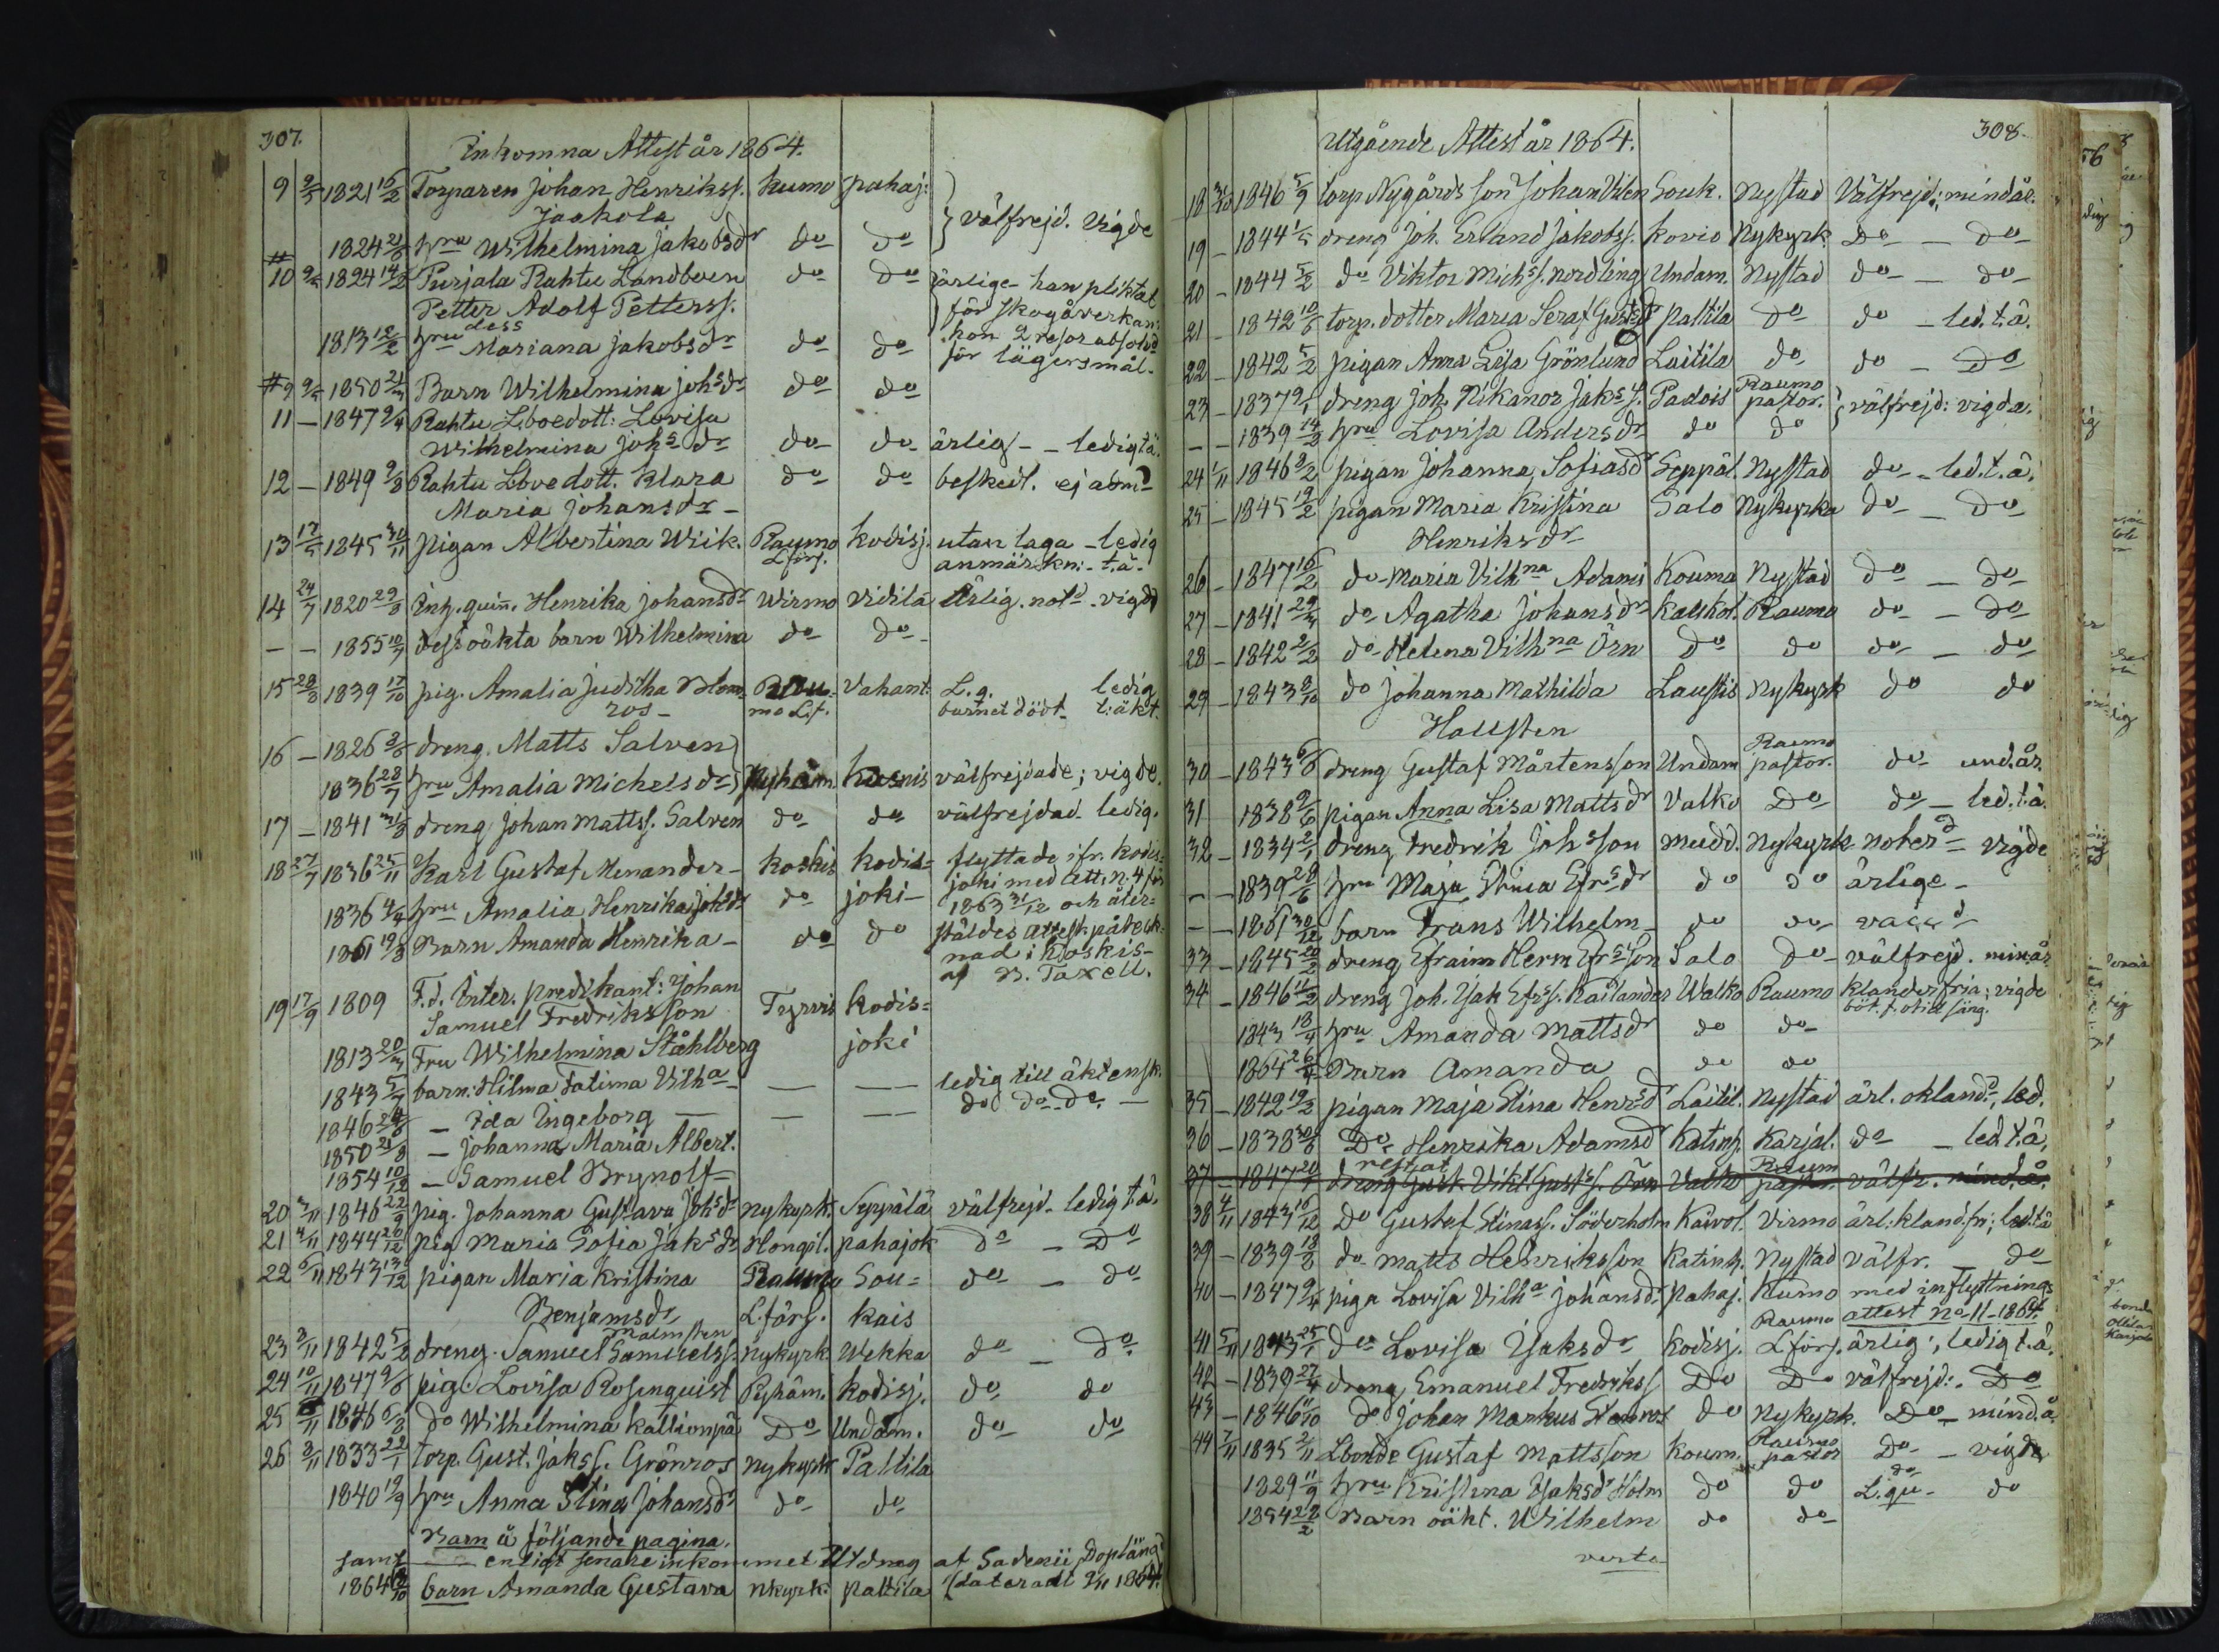 307.
Inkomna Attest år 1864.
9 9/5 1821 15/2 Torparen Johan Henrikss. Kumo pahaj:
Jaakola
välfrejd. vigde
1824 21/8 hru Wilhelmina Jakobsdr do do
# 10 9/5 1824 14/2 Purjala Rahtu Landboen do do ärlige - han pliktat
Petter Adolf Petterss. för skogåverkan:
dess
1813 12/2 hru Mariana Jakobsdr do do hon 2 resor absolvd
för lägersmål.
#9 9/5 1850 21/3 Barn Wilhelmina Johsdr do do
11 - 1847 9/4 Rahtu Lboedott: Lovisa
Wilhelmina Johsdr do do ärlig - - ledig t.ä.
12 - 1849 9/8 Rahtu Lboedott. Klara do do beskedl. ej adm.
Maria Johansdr -
13 17/5 1845 30/11 pigan Albertina Wiik. Raumo Kodisj. utan laga - ledig
L förs. anmärkn: - t.ä.
14 24/7 1820 29/8 Inh. quin. Henrika Johansdr Wirmo Vidilä Ärlig. notd. vigd
- - 1855 10/7 dess oäkta barn Wilhelmina do do -
15 28/8 1839 17/10 pig. Amalia Juditha Blom Rau- Vahant: L.q. ledig
ros - mo L.f. barnet dödt - t: äkt.
16 - 1826 3/8 dreng. Matts Salven
1836 28/7 hru Amalia Michelsdr Pyhäm. Kusnis välfrejdade; vigde.
17 - 1841 31/8 dreng Johan Mattss. Salven do do välfrejdad ledig.
18 27/7 1836 25/11 Karl Gustaf Menander - Koskis Kodis= flyttade ifr. Kodis=
joki med att. n. 4 för
1836 4/4 hru Amalia Henrika Johsdr do joki - 1863 31/12 och åter=
1861 19/8 Barn Amanda Henrika - do do stäldes attest: påteck=
nad i Koskis-
af B. Taxell.
19 17/9 1809 F.d. Inter. predikant: Johan
Samuel Fredriksson Tyrvis Kodis=
1813 20/3 Fru Wilhelmina Ståhlberg joki
1843 5/7 barn: Hilma Fatima Vilha - — — ledig till äktensk.
1846 24/8 - Ida Ingeborg — — — do do do —
1850 21/8 - Johanna Maria Albert.
1854 10/12 - Samuel Brynolf -
20 3/11 1846 22/9 pig. Johanna Gustava Johsdr Nykyrk. Seppälä välfrejd - ledig t.ä.
21 4/11 1844 20/12 pig Maria Sofia Jaksdr Hongil. pahajok do - Do
22 6/11 1843 13/12 pigan Maria Kristina Raumo Sou= do - do
Benjamsdr L. förs. kais
Malmsten
23 3/11 1842 5/2 dreng. Samuel Samuelss. Nykyrk Wekka do - Do
24 10/11 1847 9/6 pig. Lovisa Rosenquist Pyhäm. Kodisj. do do
25 /11 1846 6/3 do Wilhelmina Kallionpää Do Undam. do do
26 3/11 1833 22/1 torp. Gust. Jakss. Grönros Nykyrk Paltila
1840 19/9 hru Anna Stina Johansdr do do
Barn å följande pagina.
samt enligt senare inkommet Utdrag af Sadenii Doplängd
1864 /10 barn Amanda Gustava Nkyrk: paltila (dateradt 9/11 1864.
308.
Utgående Attest år 1864.
18 31/10 1846 5/9 torp. Nygårds son Johan Vilen Souk. Nystad Välfrejd.; mindår.
19 - 1844 1/5 dreng Joh. Erland Jakobss. Kovio Nykyrk Do - Do
20 - 1844 5/2 do Viktor Michss. Nordling Undam. Nystad do - do
21 - 1842 10/6 torp. dotter Maria Seraf Gustsdr paltila Do do - led. t. ä.
22 - 1842 5/2 pigan Anna Lisa Grönlund Laitila do do - Do
23 - 1837 9/1 dreng Joh. Nikanor Jakss. Padois Raumo pastor. välfrejd: vigda.
- - 1839 14/2 hru Lovisa Andersdr do do
24 1/11 1846 9/2 pigan Johanna Sofiasdr Seppäl. Nystad do - led. t. ä.
25 - 1845 19/2 pigan Maria Kristina Salo Nykyrka do - Do
Henriksdr
26 - 1847 16/2 do - Maria Vilhna Adamsd Kouma Nystad do - do
27 - 1841 29/3 do Agatha Johansdr Kaukol. Raumo do - Do
28 - 1842 2/2 do - Helena Vilhna Örn Do do do - do
29 - 1843 8/10 do Johanna Mathilda Laustis Nykyrk do do
Hallsten
30 - 1843 6/8 dreng Gustaf Mårtensson Undam Raumo pastor. do und. år.
31 1838 9/6 pigan Anna Lisa Mattsdr Valko Do do - led. t. ä.
32 - 1834 2/1 dreng Fredrik Johsson mudd. Nykyrk noterd vigde
- - 1839 28/6 hru Maja Stina Efrsdr do do ärlige -
- - 1861 30/12 barn Frans Wilhelm - do do vaccd
33 - 1845 20/2 dreng Efraim Herm Efrsson Salo Do välfrejd. min. år.
34 - 1846 11/2 dreng Joh. Isak Efrss. Kailander Walko Raumo klanderfria; vigde
böt. f. otid. säng.
1843 18/4 hru Amanda Mattsdr do do
1864 26/4 Barn Amanda do do
35 - 1842 19/2 pigan Maja Stina Henrsdr Laitil. Nystad ärl. okland., led.
36 - 1838 30/8 Do Henrika Adamsdr Katinh. Karjal. do - led. t. ä.
restat
37 - 1847 20/7 dreng Gust. Vikt. Gustss. Örn Valko Raum pastor. välfr. mind. å.
38 4/11 1843 16/12 Do Gustaf Stinass. Söderholm Kaivol. Virmo ärl: kland. fri; led. t. ä
39 - 1839 18/2 do Matts Henriksson Katinh. Nystad välfr. - do
40 - 1847 9/4 piga Lovisa Vilha Johansdr pahaj. Kumo med inflyttnings
attest No 11 - 1864.
41 5/11 1843 25/1 do Lovisa Isaksdr Kodisj. Raumo L förs. ärlig; ledig t. ä.
42 - 1839 27/4 dreng Emanuel Fredrikss. Do Do välfrejd: Do
43 - 1846 11/10 do Johan Markus Stenros do Nykyrk. Do - mind. å.
44 7/11 1835 2/11 Lbonde Gustaf Mattsson Koum. Raumo pastor Do - vigde
do
1829 11/9 hru Kristina Isaksdr Holm do do L. qu - do
1854 22/2 Barn oäkt. Wilhelm do do
verte